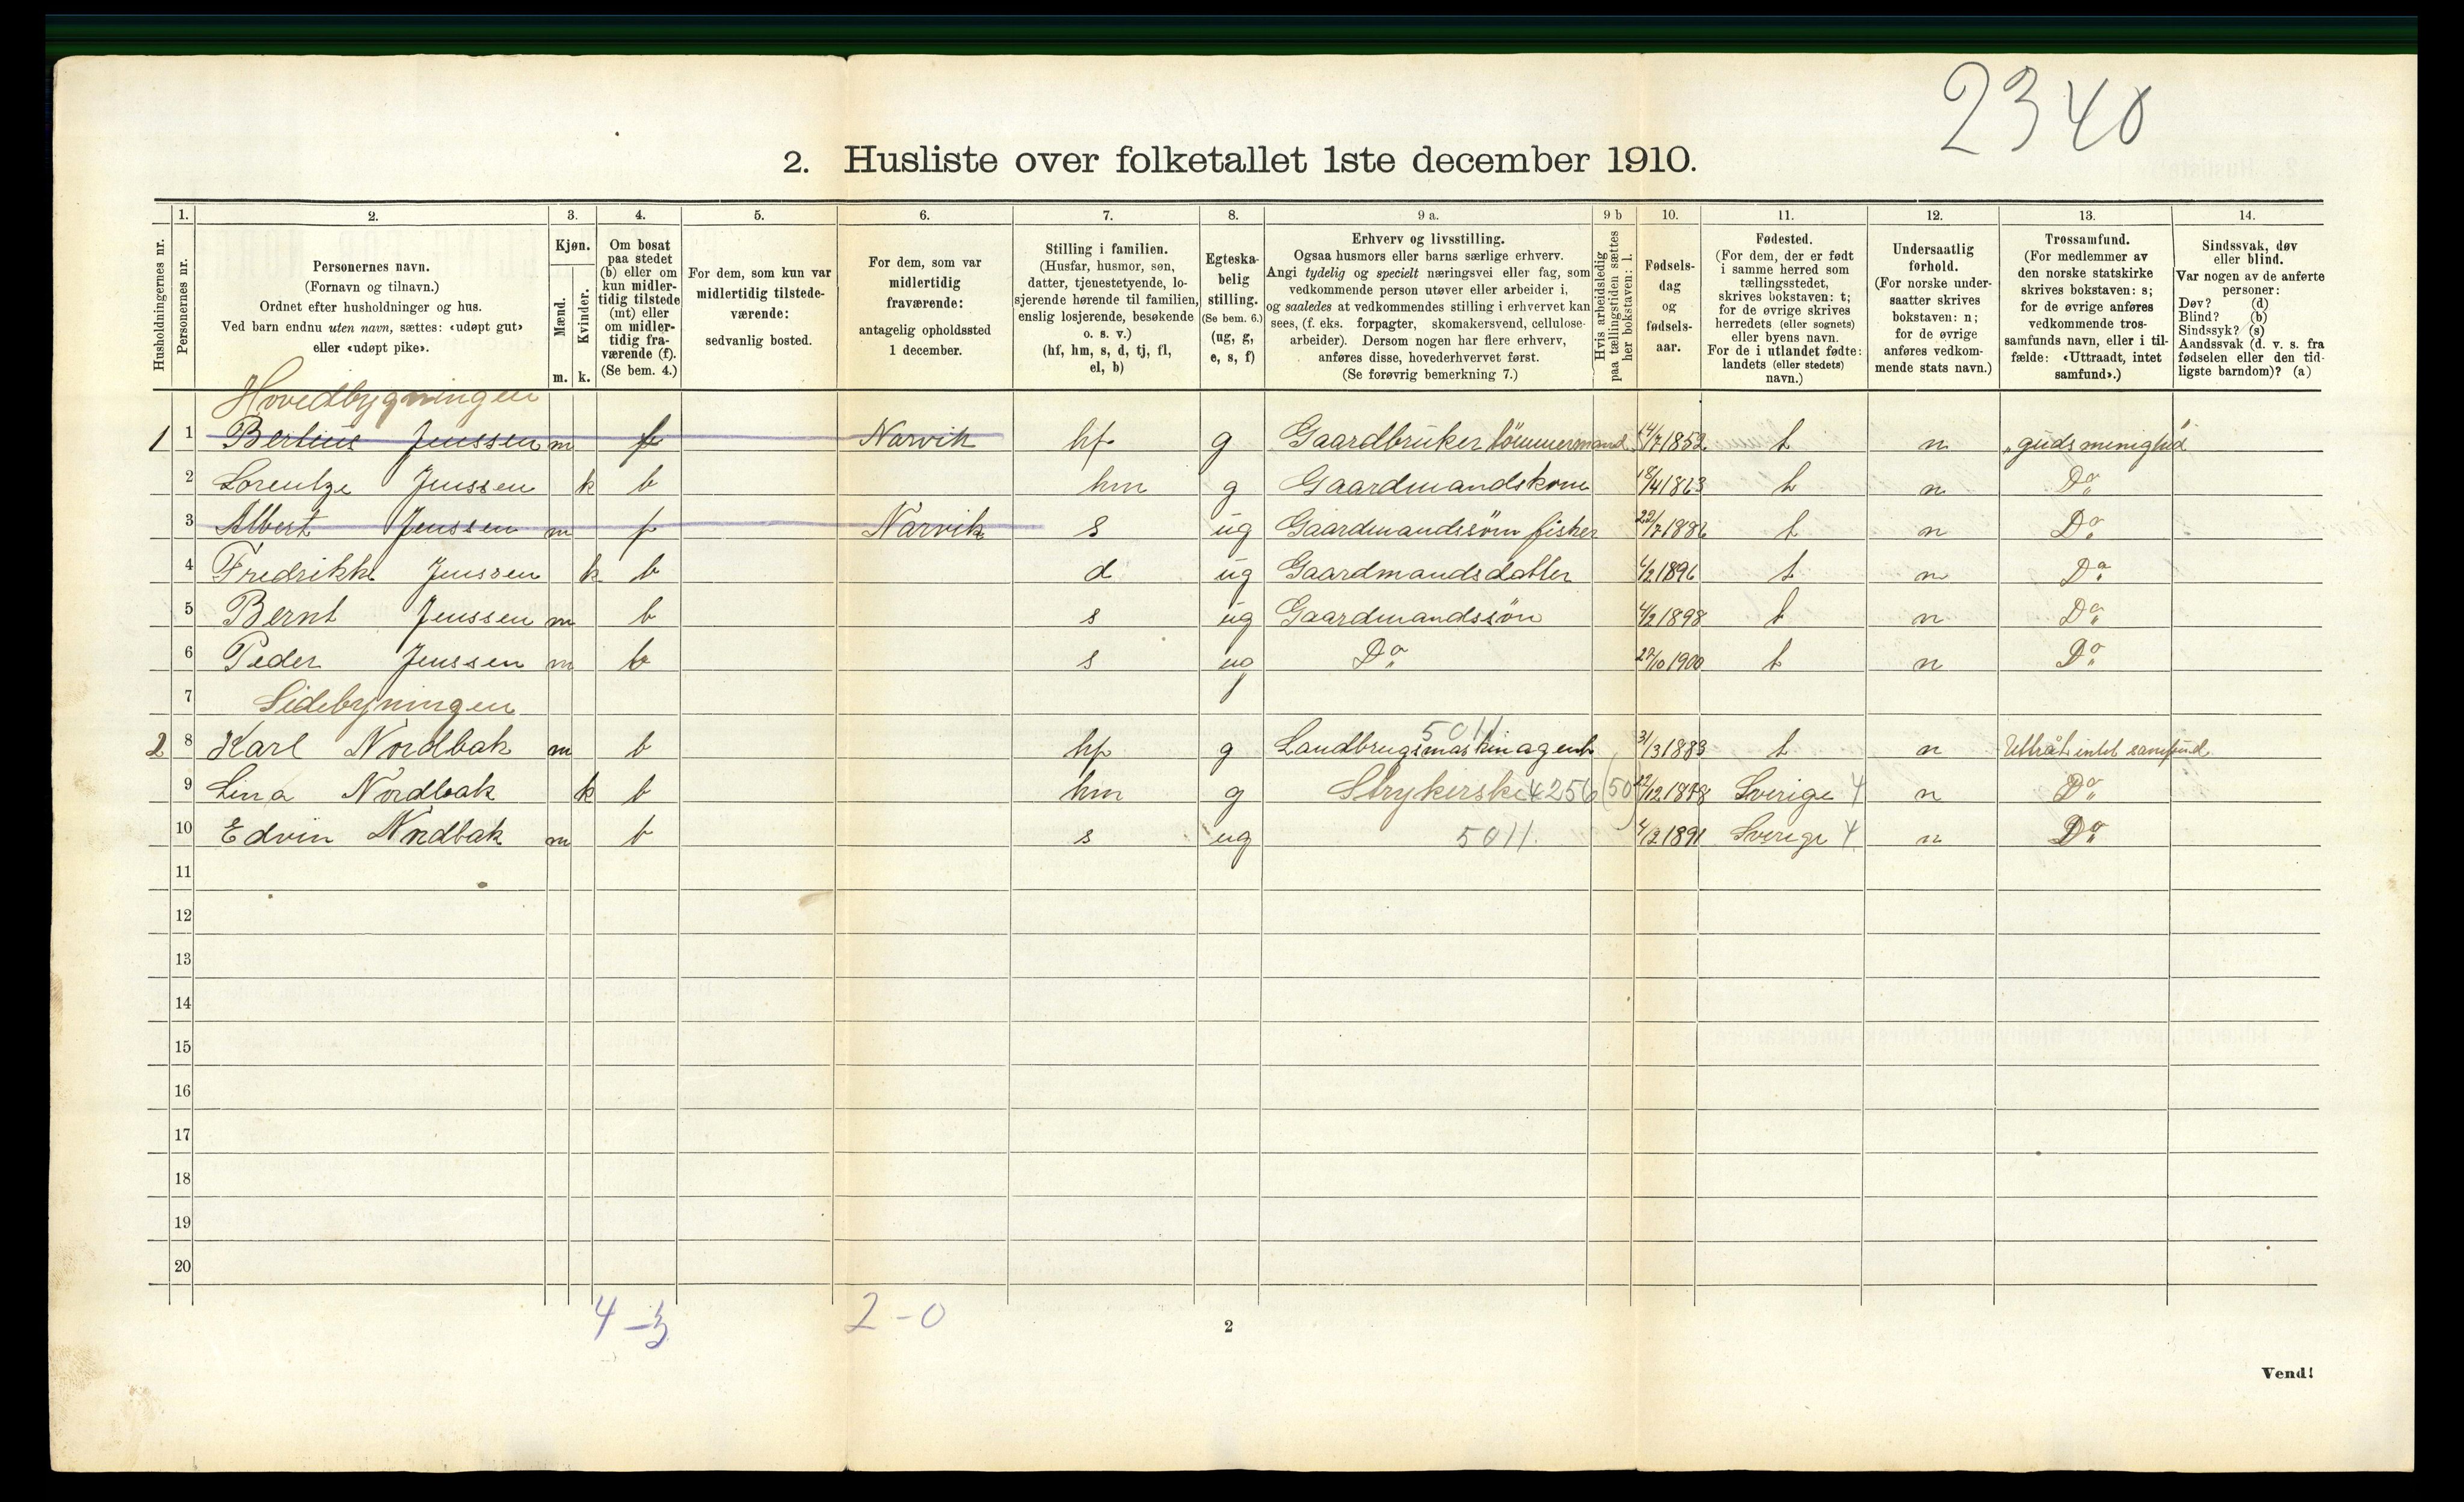 2340
2. Husliste over folketallet 1ste december 1910.
1. 2. 3. 4. 5. 6. 7. 8. 9 a. 9 b 10. 11. 12. 13. 14.
Husholdningernes nr.
Personernes nr.
Personernes navn.
(Fornavn og tilnavn.)
Ordnet efter husholdninger og hus.
Ved barn endnu uten navn, sættes: «udøpt gut»
eller «udøpt pike».
Kjøn.
Mænd.
Kvinder.
m. k.
Om bosat
paa stedet
(b) eller om
kun midler-
tidig tilstede
(mt) eller
om midler-
tidig fra-
værende (f).
(Se bem. 4.)
For dem, som kun var
midlertidig tilstede-
værende:
sedvanlig bosted.
For dem, som var
midlertidig
fraværende:
antagelig opholdssted
1 december.
Stilling i familien.
(Husfar, husmor, søn,
datter, tjenestetyende, lo-
sjerende hørende til familien,
enslig losjerende, besøkende
o. s. v.)
(hf, hm, s, d, tj, fl,
el, b)
Egteska-
belig
stilling.
(Se bem. 6.)
(ug, g,
e, s, f)
Erhverv og livsstilling.
Ogsaa husmors eller barns særlige erhverv.
Angi tydelig og specielt næringsvei eller fag, som
vedkommende person utøver eller arbeider i,
og saaledes at vedkommendes stilling i erhvervet kan
sees, (f. eks. forpagter, skomakersvend, cellulose-
arbeider). Dersom nogen har flere erhverv,
anføres disse, hovederhvervet først.
(Se forøvrig bemerkning 7.)
Hvis arbeidsledig
paa tællingstiden sættes
her bokstaven: l.
Fødsels-
dag
og
fødsels-
aar.
Fødested.
(For dem, der er født
i samme herred som
tællingsstedet,
skrives bokstaven: t;
for de øvrige skrives
herredets (eller sognets)
eller byens navn.
For de i utlandet fødte:
landets (eller stedets)
navn.)
Undersaatlig
forhold.
(For norske under-
saatter skrives
bokstaven: n;
for de øvrige
anføres vedkom-
mende stats navn.)
Trossamfund.
(For medlemmer av
den norske statskirke
skrives bokstaven: s;
for de øvrige anføres
vedkommende tros-
samfunds navn, eller i til-
fælde: «Uttraadt, intet
samfund».)
Sindssvak, døv
eller blind.
Var nogen av de anførte
personer:
Døv? (d)
Blind? (b)
Sindssyk? (s)
Aandssvak (d. v. s. fra
fødselen eller den tid-
ligste barndom)? (a)
Hovedbygningen
1 1 Bertius Jenssen m f Narvik hf g Gaardbruker tömmermand 14/7 1852 t n "guds menighed"
2 Lorentze Jenssen k b hm g Gaardmandskone 18/4 1863 t n Do
3 Albert Jenssen m f Narvik s ug Gaardmandssön fisker 22/7 1886 t n Do
4 Fredrikke Jenssen k b d ug Gaardmandsdatter 1896 t n Do
5 Bernt Jenssen m b s ug Gaardmandssön 4/2 1898 t n Do
6 Peder Jenssen m b s ug Do 22/10 1900 t n Do
7 Sidebyningen
5011
2 8 Karl Nordbak m b hf g Landbrugsmaskinagent 31/3 1883 t n Uttråt intet samfund
9 Lina Nordbak k b hm g Strykerske 4256 (50) Sverige 4 n Do
10 Edvin Nordbak m b s ug 5011. Sverige 4 n Do
11
12
13
14
15
16
17
18
19
20
4-3 2-0
2
Vend!